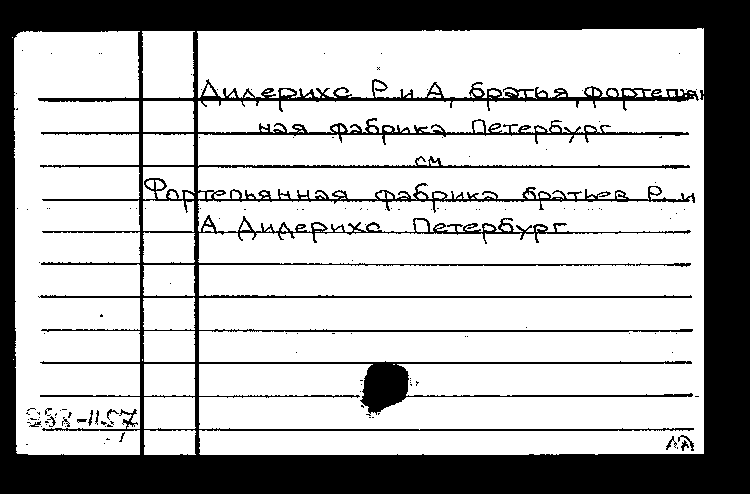 Дидерихс Р и А, братья, фортепьян
ная фабрика Петербург
см
Фортепьянная фабрика братьев Р. и
А. Дидерихс Петербург
988-1157